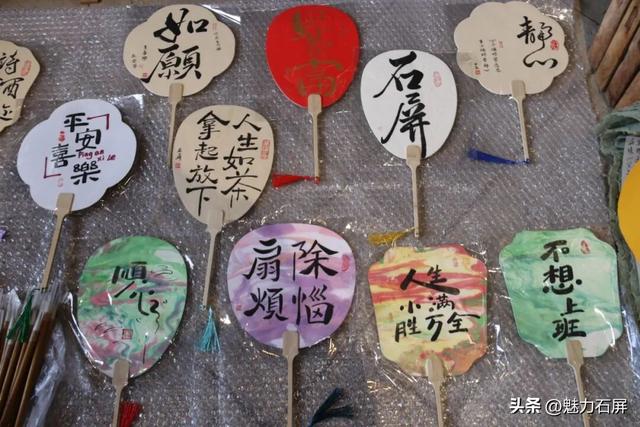 如願
暴富
石屏
靜心
平安
喜樂
Ping an
xi le
人生如茶
拿起放下
順心
扇除
煩惱
人生
小满
胜万全
不想
上班
头条 @魅力石屏